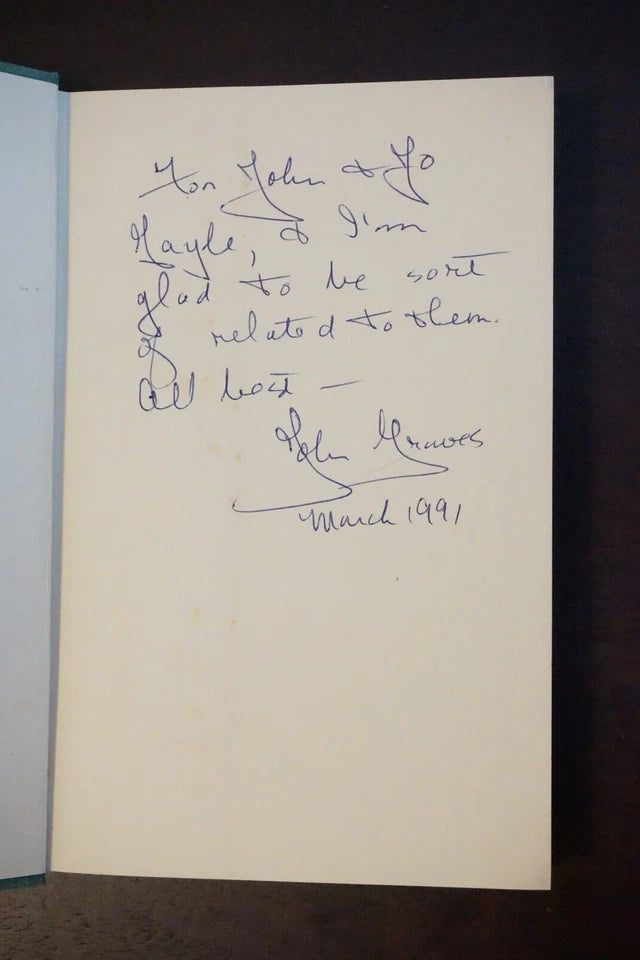 For John & Jo
Gayle, & I'm
glad to be sort
of related to them.
All best —
John Graves
March 1991